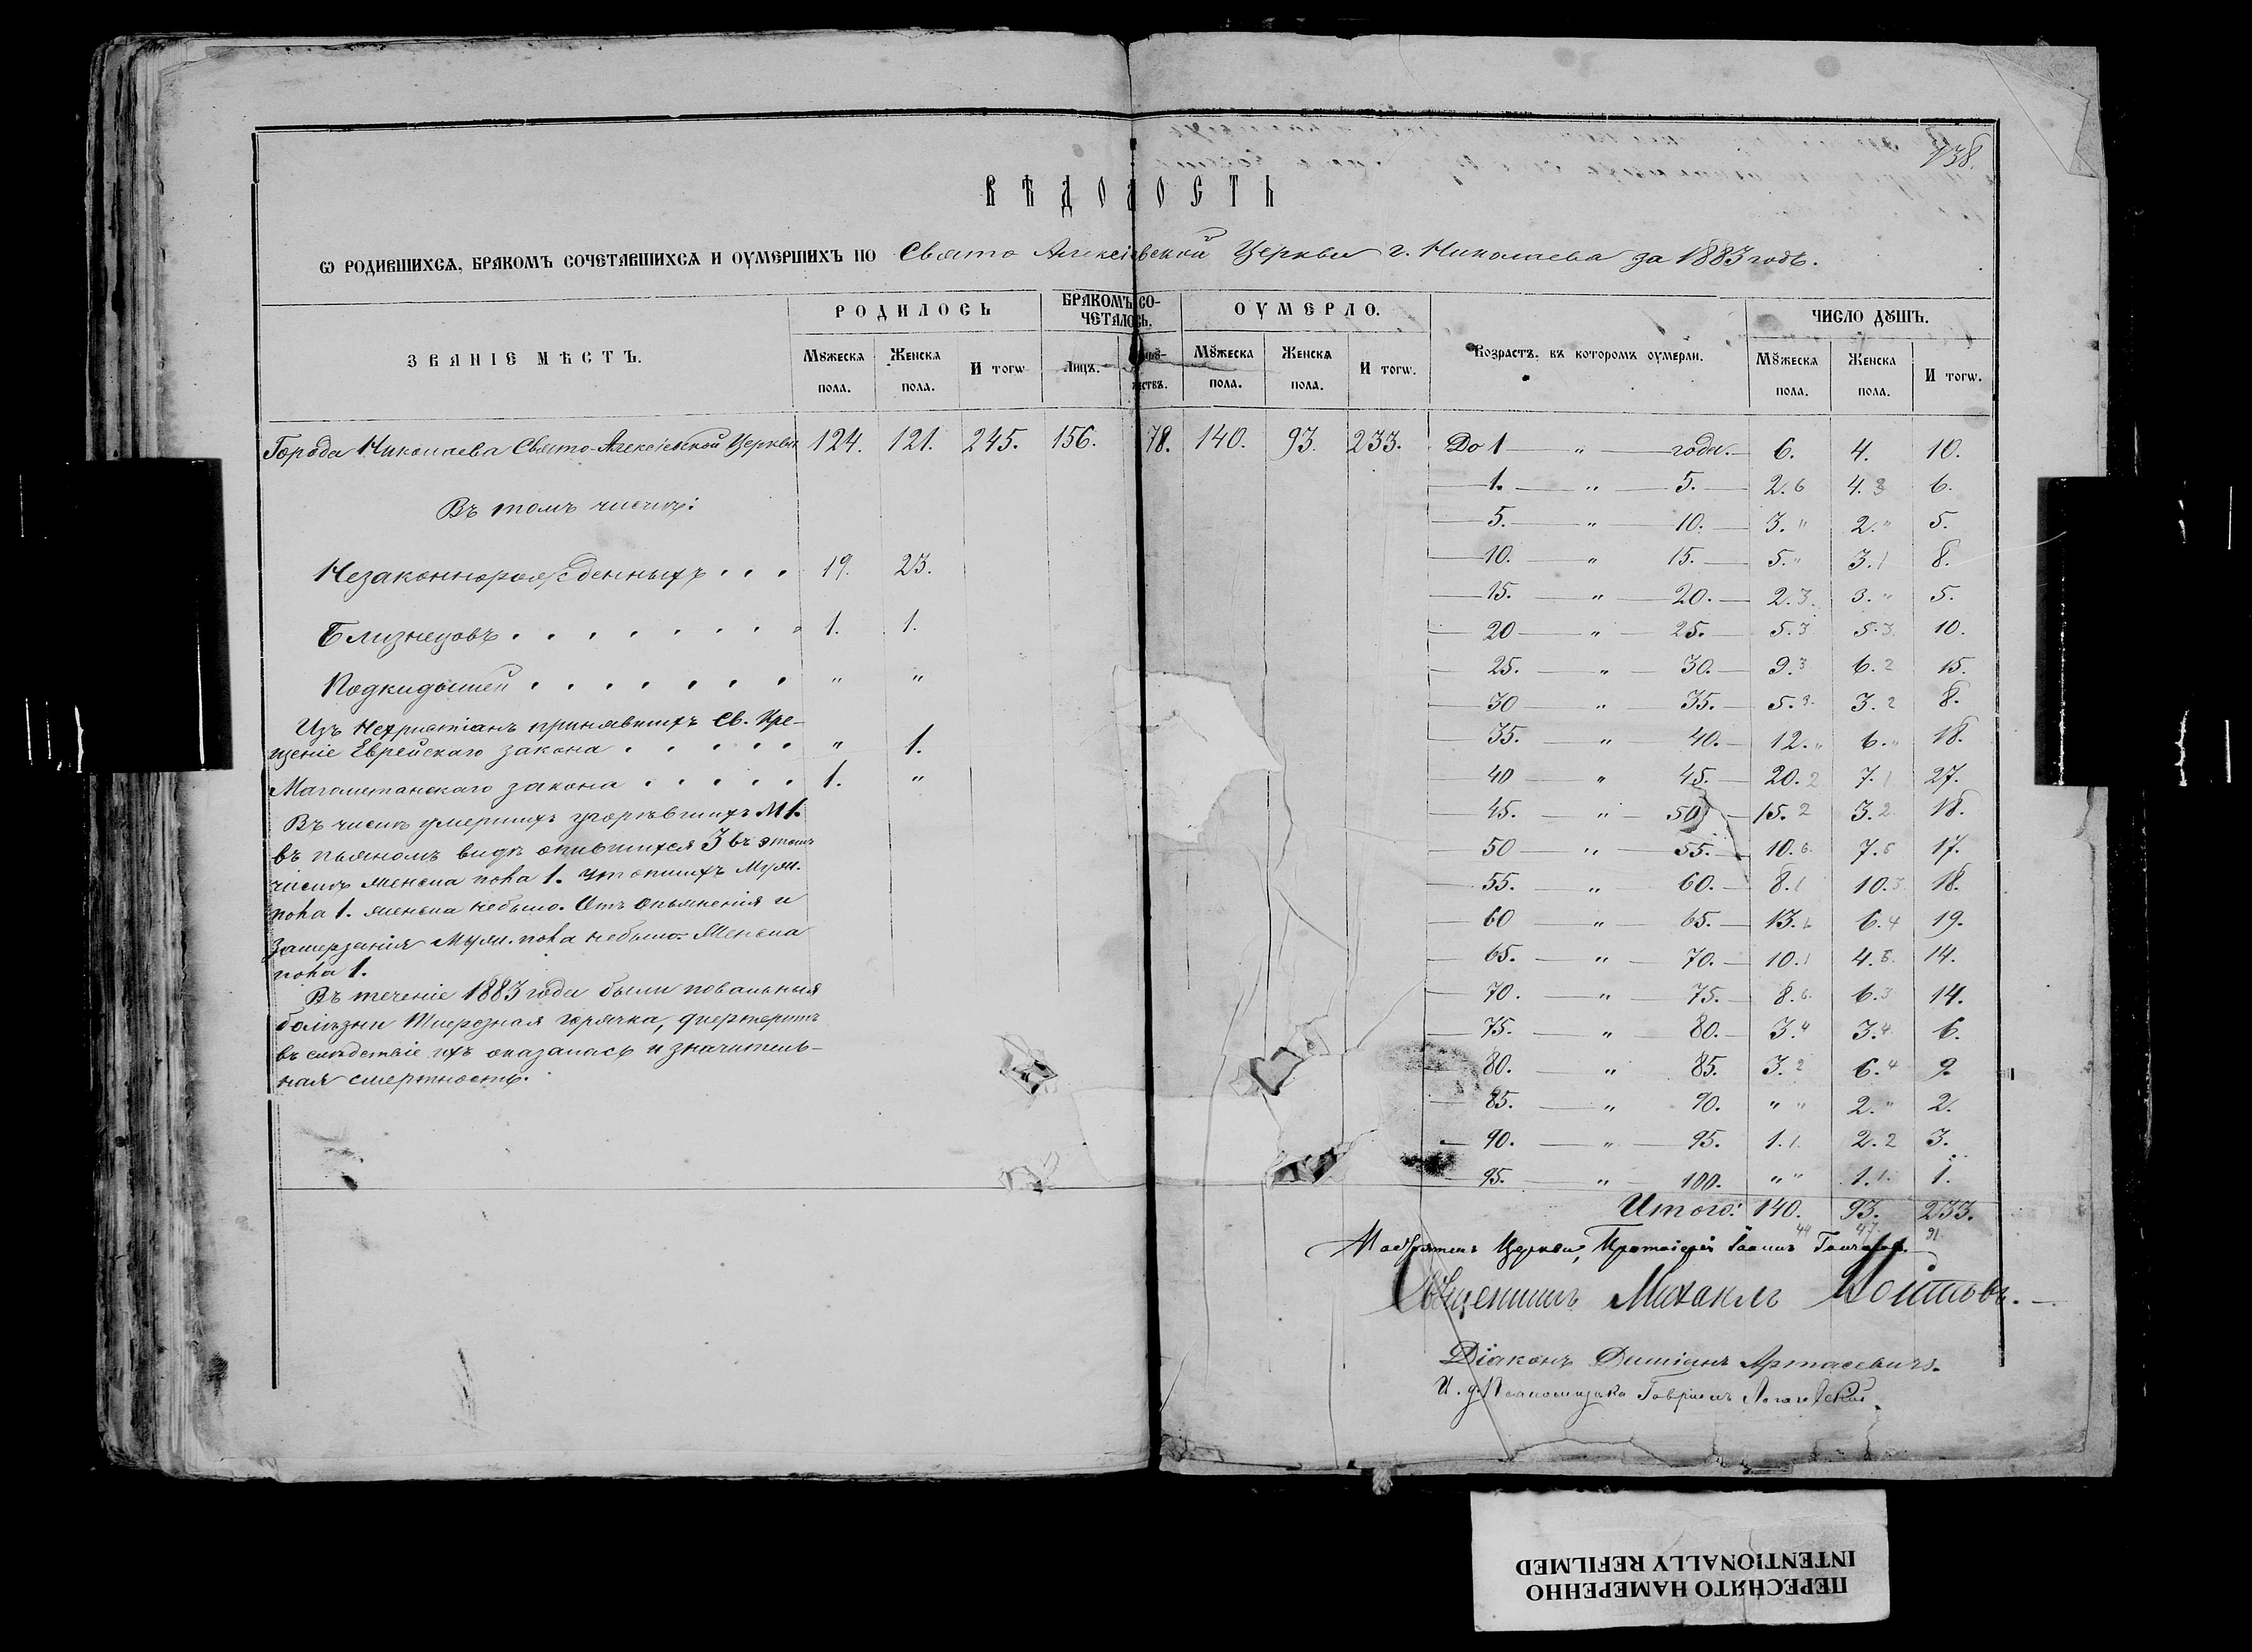 138.
ВѢДОМОСТЬ
Ѡ РОДИВШИХСѦ, БРАКОМЪ СОЧЕТАВШИХСѦ И ОУМЕРШИХЪ ПО Свято Алексіевской Церкви г. Николаева за 1883 годъ.
ЗВАНІЕ МѢСТЪ. РОДИЛОСЬ БРАКОМЪ СО-ЧЕТАЛОСЬ. ОУМЕРЛО. Возрастъ, въ которомъ оумерли. ЧИСЛО ДꙊШЪ.
Мꙋжеска пола. Женска пола. И тогѡ Лицъ. Мꙋжеска пола. Женска пола. И тогѡ. Мꙋжеска пола. Женска пола. И тогѡ.
Города Николаева Свято-Алексіевской Церкви 124. 121. 245. 156. 78. 140. 93. 233.
Въ томъ числѣ:
Незаконнорожденныхъ . . . 19. 23.
Близнецовъ . . . . . . . . 1. 1.
Подкидышей . . . . . . . " "
Изъ Нехристіанъ принявшихъ Св. Кре-
щеніе Еврейскаго закона . . . . . " 1.
Магометанскаго закона . . . . . 1. "
Въ числѣ умершихъ угорѣвшихъ М 1.
въ пьяномъ видѣ опившихся 3 въ этомъ
числѣ женска пола 1. утопшихъ Муж.
пола 1. женска небыло. Отъ опьяненія и
Замерзанія Муж. пола небыло. Женска
пола 1.
Въ теченіе 1883 года были повальныя
болѣзни Тиерозная горячка, диѳтеритъ
въ слѣдствіе ихъ оказалась и значитель-
ная смертность.
До 1 — " — года. — 6. 4. 10.
1. — " — 5. — 2. 6 4. 3 6.
5. — " — 10. — 3. " 2. " 5.
10. — " 15. — 5. " 3. 1 8.
15. — " — 20. — 2. 3. 3. " 5.
20 — " — 25. — 5. 3 5. 3. 10.
25. — " — 30. — 9. 3. 6. 2 15.
30 — " — 35. — 5. 3. 3. 2 8.
35. — " — 40. — 12. " 6. " 18.
40 — " — 45. — 20. 2 7. 1 27.
45. — " — 50 — 15. 2 3. 2. 18.
50 — " — 55. — 10. 6. 7. 5 17.
55. — " — 60. — 8. 1 10. 3. 18.
60 — " — 65. — 13. 1 6. 4 19.
65. — " — 70. — 10. 1 4. 5. 14.
70. — " — 75. — 8. 6. 6. 3 14.
75. — " — 80. — 3. 4 3. 4. 6.
80. — " — 85. 3. 2 6. 4 9.
85. — " — 90. " " 2. " 2.
90. — " — 95. 1. 1. 2. 2 3.
95. — " — 100. " " 1. 1. 1.
Итого: 140. 93. 233.
44 47. 91.
Настоятель Церкви, Протоіерей Іоаннъ
Священникъ Михаилъ
Діаконъ Диміанъ Артасевичъ.
И. д. Псаломщика Гавріилъ
ПЕРЕСНЯТО НАМЕРЕННО
INTENTIONALLY REFILMED